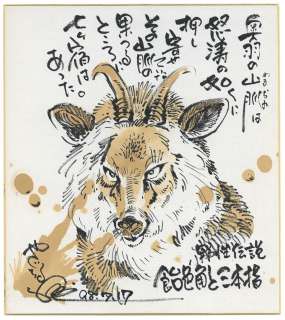 奥羽の山脈は
怒濤の如くに
押し
寄せて
その山脈の
果つる
ところに
七ヶ宿は
あった。
野性伝説
飴色角と三本指
98.7.17